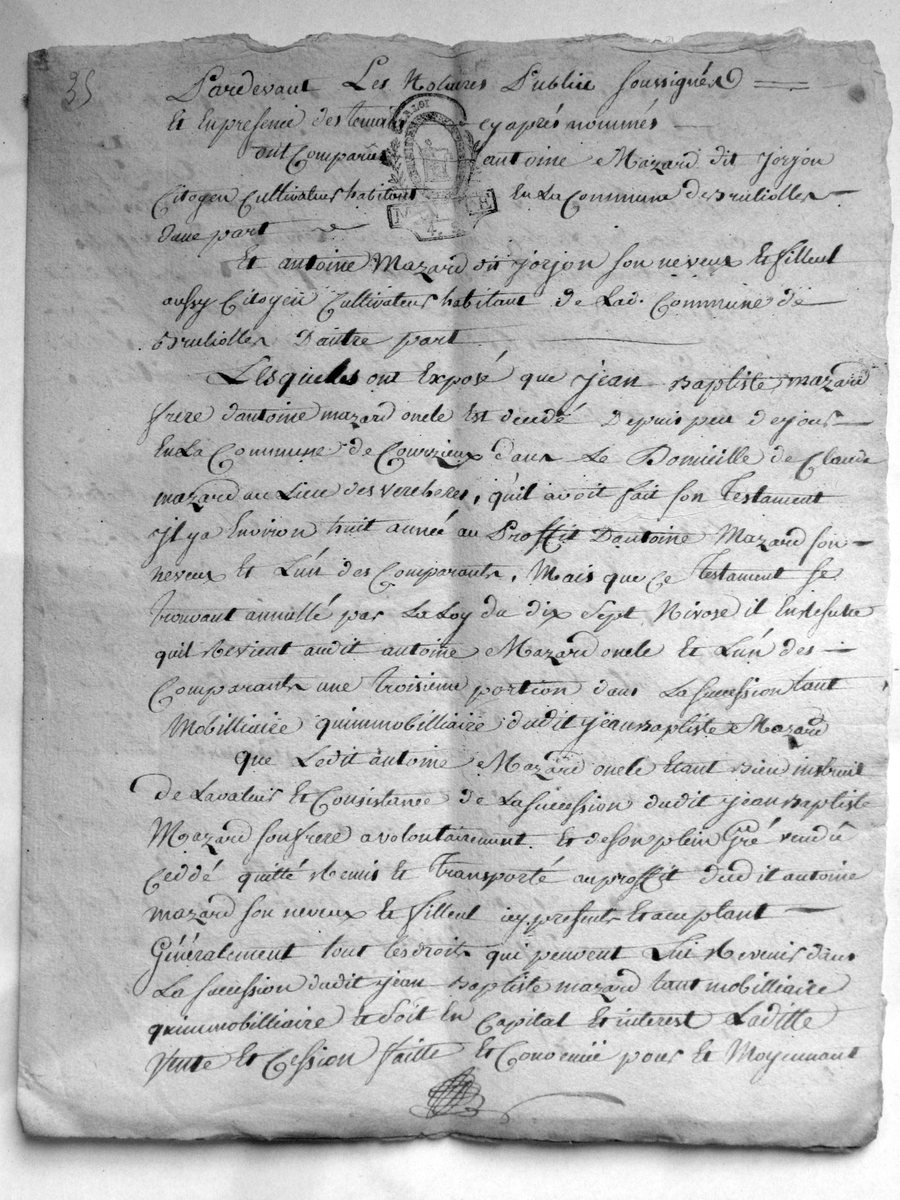 35
Pardevant Les Notaires Public soussignés
Et Enpresence des temoins cy après nommés
LA LOI
ont Comparus antoine Mazard dit Jorjon
Citoyen Cultivateur habitant En La Commune de Bruliolles
dune part
Et antoine Mazard dit jorjon son neveux Et filleul
aussy Citoyen Cultivateur habitant de Lad. Commune de
Bruliolles D'autre part
Lesquels ont Exposé que jean Baptiste mazard
frere d'antoine mazard oncle Est decedé Depuis peu de jours
En La Commune de Courzieux dans Le Domicille de Claude
mazard au Lieu des vercheres, qu'il avoit fait son Testament
Il ya Environ huit année au Proffit D'antoine Mazard son
neveux Et L'un des Comparants, Mais que Ce Testament se
trouvant annullé par La Loy du dix Sept Nivose il En resulte
qu'il Revient audit antoine Mazard oncle Et L'un des
Comparants une troisieme portion dans La succession tant
Mobilliaire qu'immobilliaire dudit jean Baptiste Mazard
que Ledit antoine Mazard oncle Etant Bien instruit
De La valeur Et Consistance de La succession dudit jean Baptiste
Mazard son frere a volontairement Et de son plein Gré vendu
Ceddé quitté Remis Et Transporté au proffit dudit antoine
mazard son neveux Et filleul icy present Et acceptant
Généralement tout les droits qui peuvent Lui Revenir dans
La succession dudit jean Baptiste mazard tant mobilliaire
qu'immobilliaire Soit En Capital Et interest Laditte
Vente Et Cession faitte Et Convenüe pour Et Moyennant